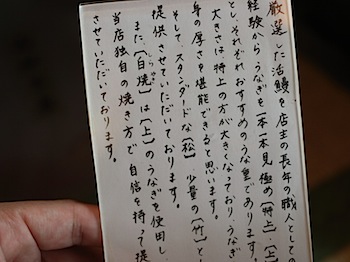 厳選した活鰻を店主の長年の職人としての
経験から うなぎを一本一本見極め〔特上〕〔上〕
とし、それぞれ おすすめのうな重であります。
大きさは 特上の方が大きくなっており、うなぎ
の厚さを堪能できると思います。
そして、スタンダードな〔松〕 少量の〔竹〕と
提供させていただいております。
また、〔白焼〕は〔上〕のうなぎを使用し
しらやき
当店独自の焼き方で 自信を持って提
させていただいております。